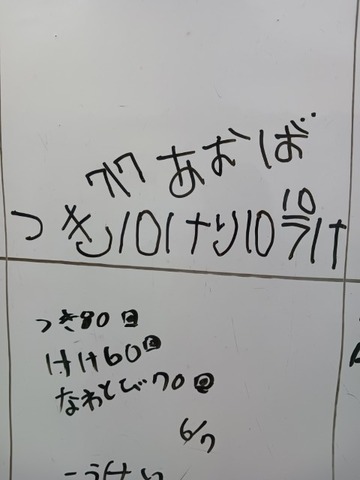 7/7 あおば
10
つき10けり10うけ
つき80回
けけ60回
なわとび70回
6/7